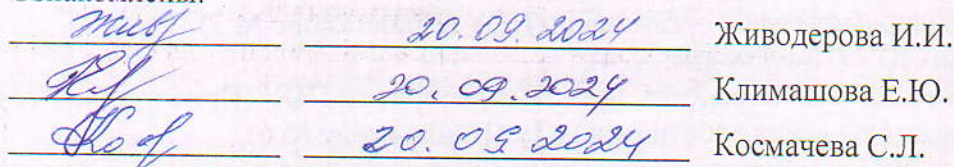 Ознакомлены:
Жив 20.09.2024 Живодерова И.И.
20.09.2024 Климашова Е.Ю.
Кос 20.09.2024 Космачева С.Л.